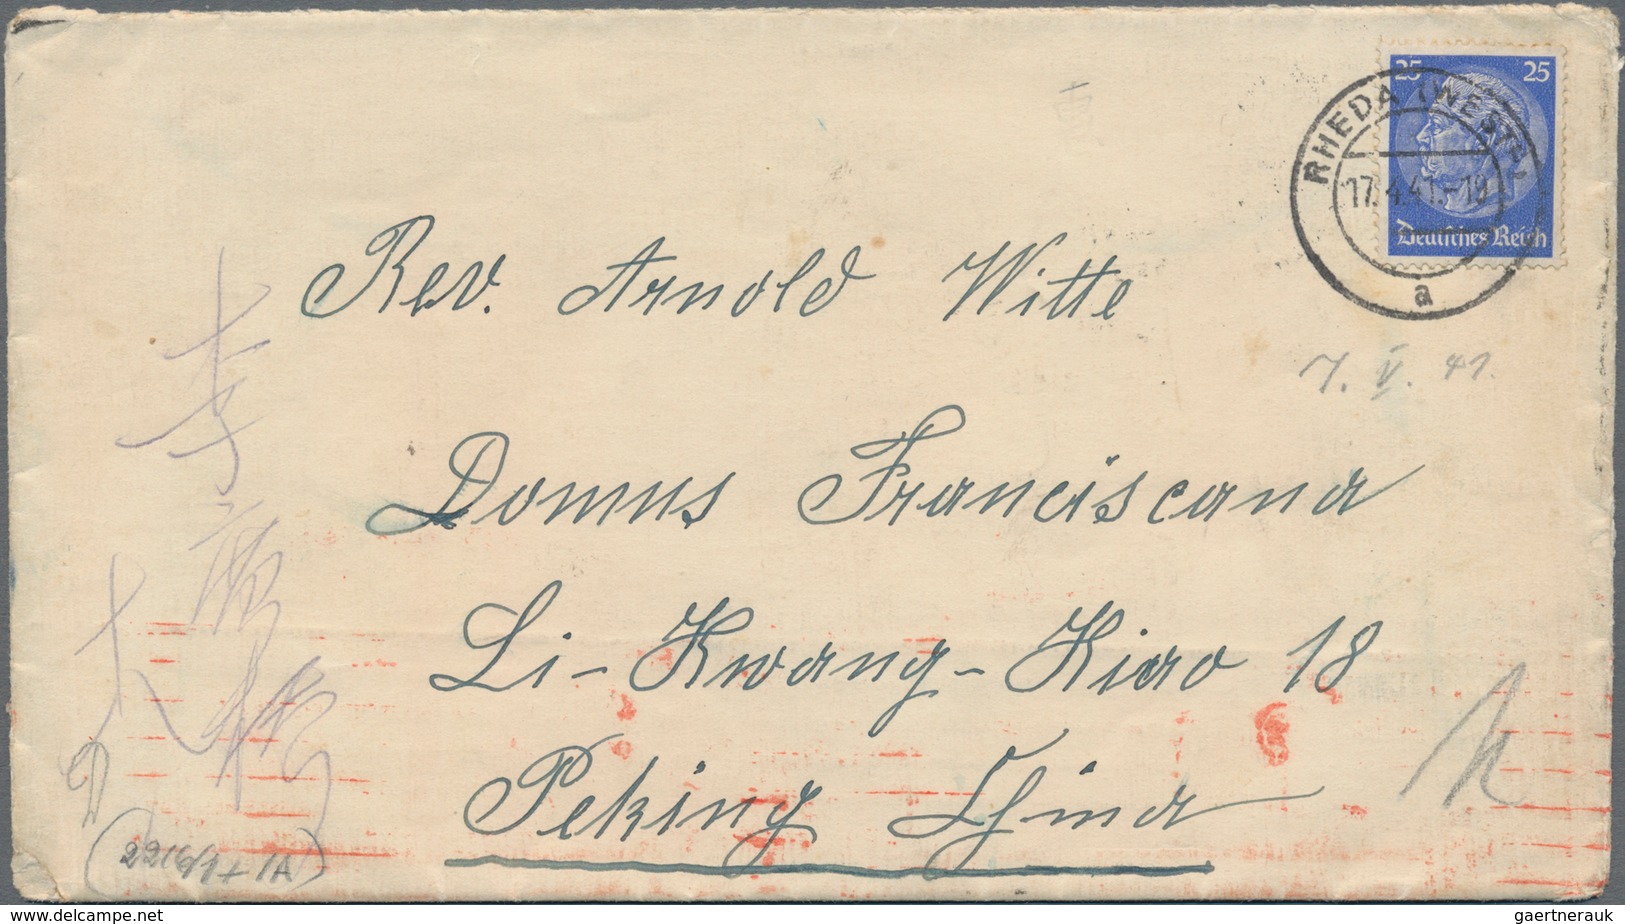 25 25
Deutsches Reich
RHEDA (WESTF.)
17.4.41.-19
a
Rev. Arnold Witte
7. V. 41.
Domus Franciscana
Li-Kwang-Kiao 18
Peking China
李
大
(2216/1+1A)
delcampe.net
gaertnerauk